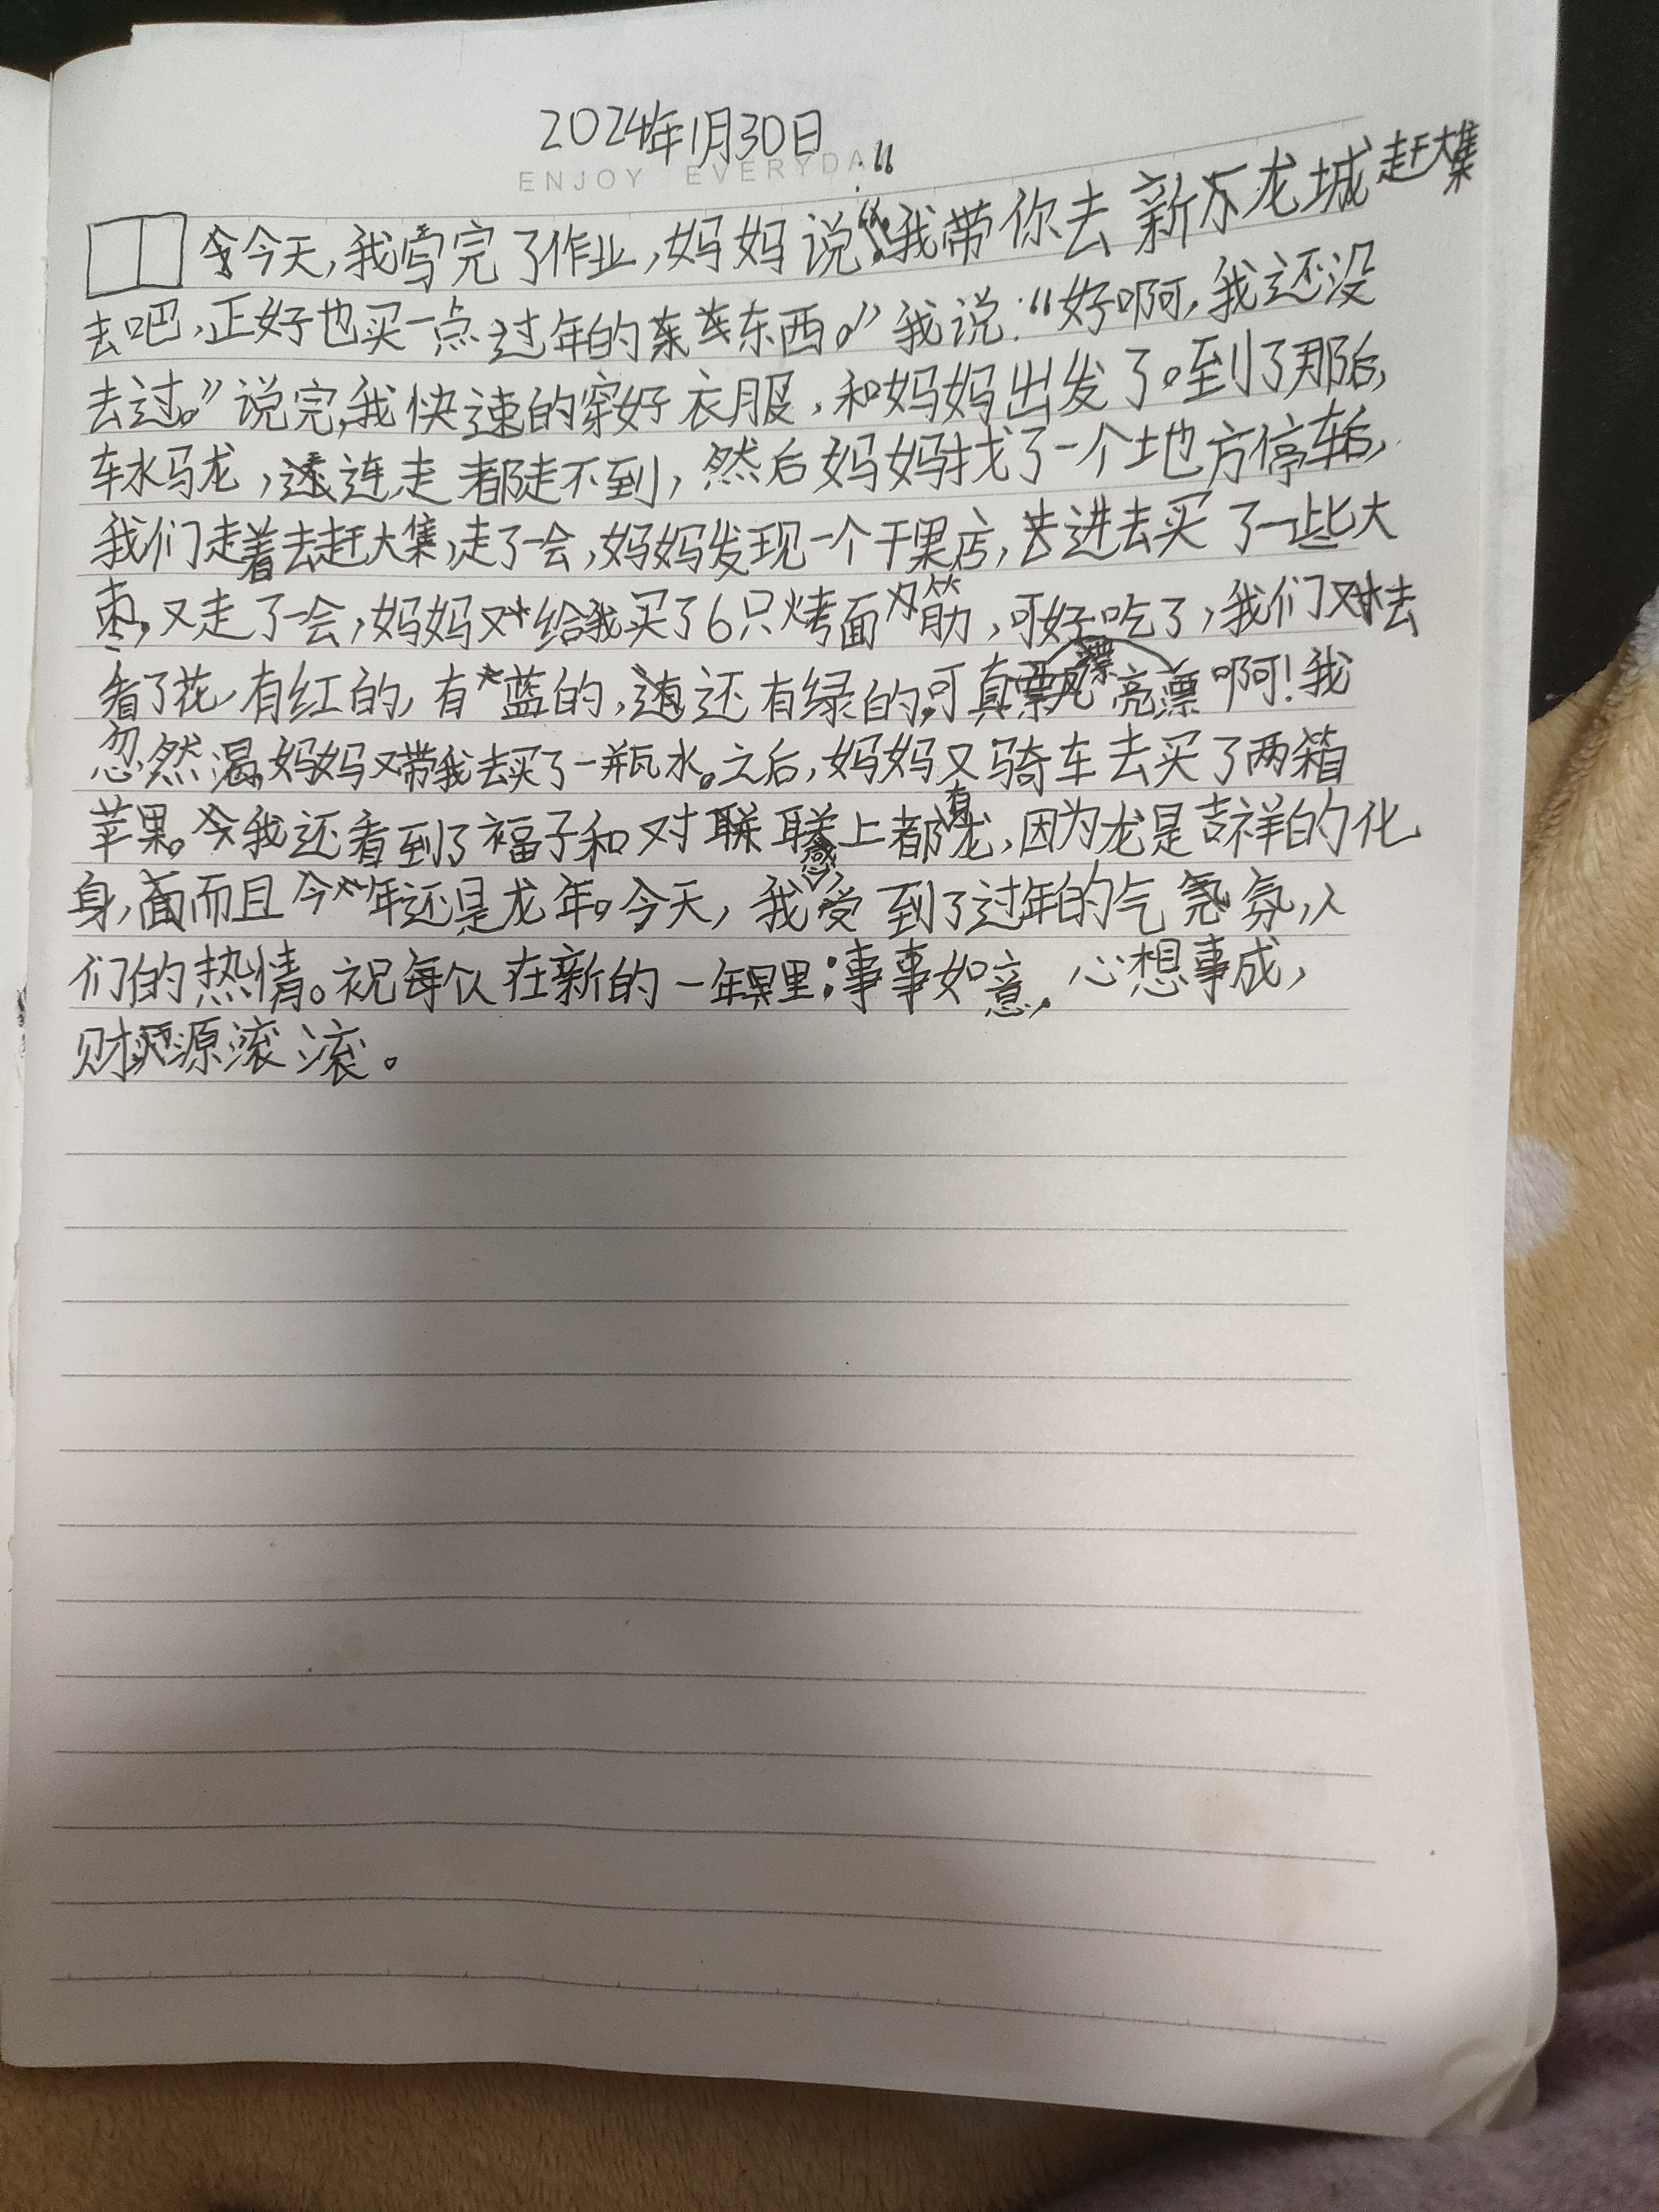 2024年1月30日
ENJOY EVERYDA
今天，我写完了作业，妈妈说：“我带你去新万龙城赶大集
去吧，正好也买一点过年的东西。”我说：“好啊，我还没
去过。”说完，我快速的穿好衣服，和妈妈出发了。到了那后，
车水马龙，连走都走不到，然后妈妈找了一个地方停车后，
我们走着去赶大集，走了一会，妈妈发现一个干果店，进去买了一些大
枣，又走了一会，妈妈又给我买了6只烤面筋，可好吃了，我们又去
看了花，有红的，有蓝的，还有绿的，可真漂亮啊！我
忽然渴，妈妈又带我去买了一瓶水。之后，妈妈又骑车去买了两箱
苹果。我还看到了福子和对联，联上都有龙，因为龙是吉祥的化
身，而且今年还是龙年。今天，我感受到了过年的气氛，人
们的热情。祝每个人在新的一年里：事事如意，心想事成，
财源滚滚。